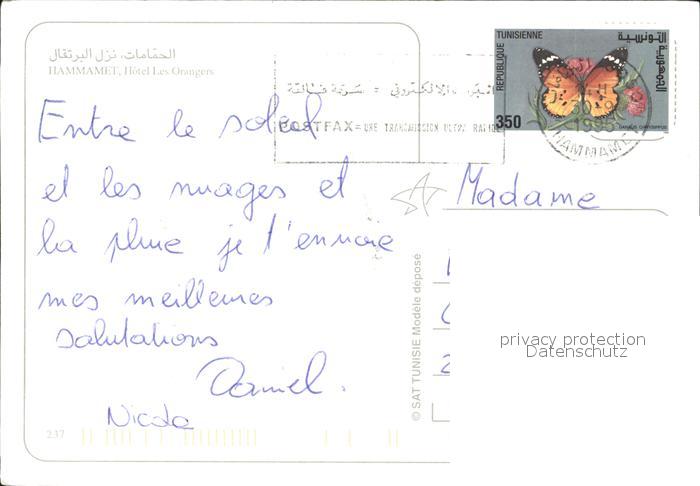 الحمّامات، نزل البرتقال
HAMMAMET, Hôtel Les Orangers
Entre le soleil
et les nuages et
la pluie je t'envoie
mes meilleures
salutations
Daniel.
Nicole
237
© SAT TUNISIE Modèle déposé
POSTFAX = UNE TRANSMISSION ULTRA RAPIDE
REPUBLIQUE TUNISIENNE
الجمهورية التونسية
350
DANAUS CHRYSIPPUS
1995
HAMMAMET
Madame
privacy protection
Datenschutz